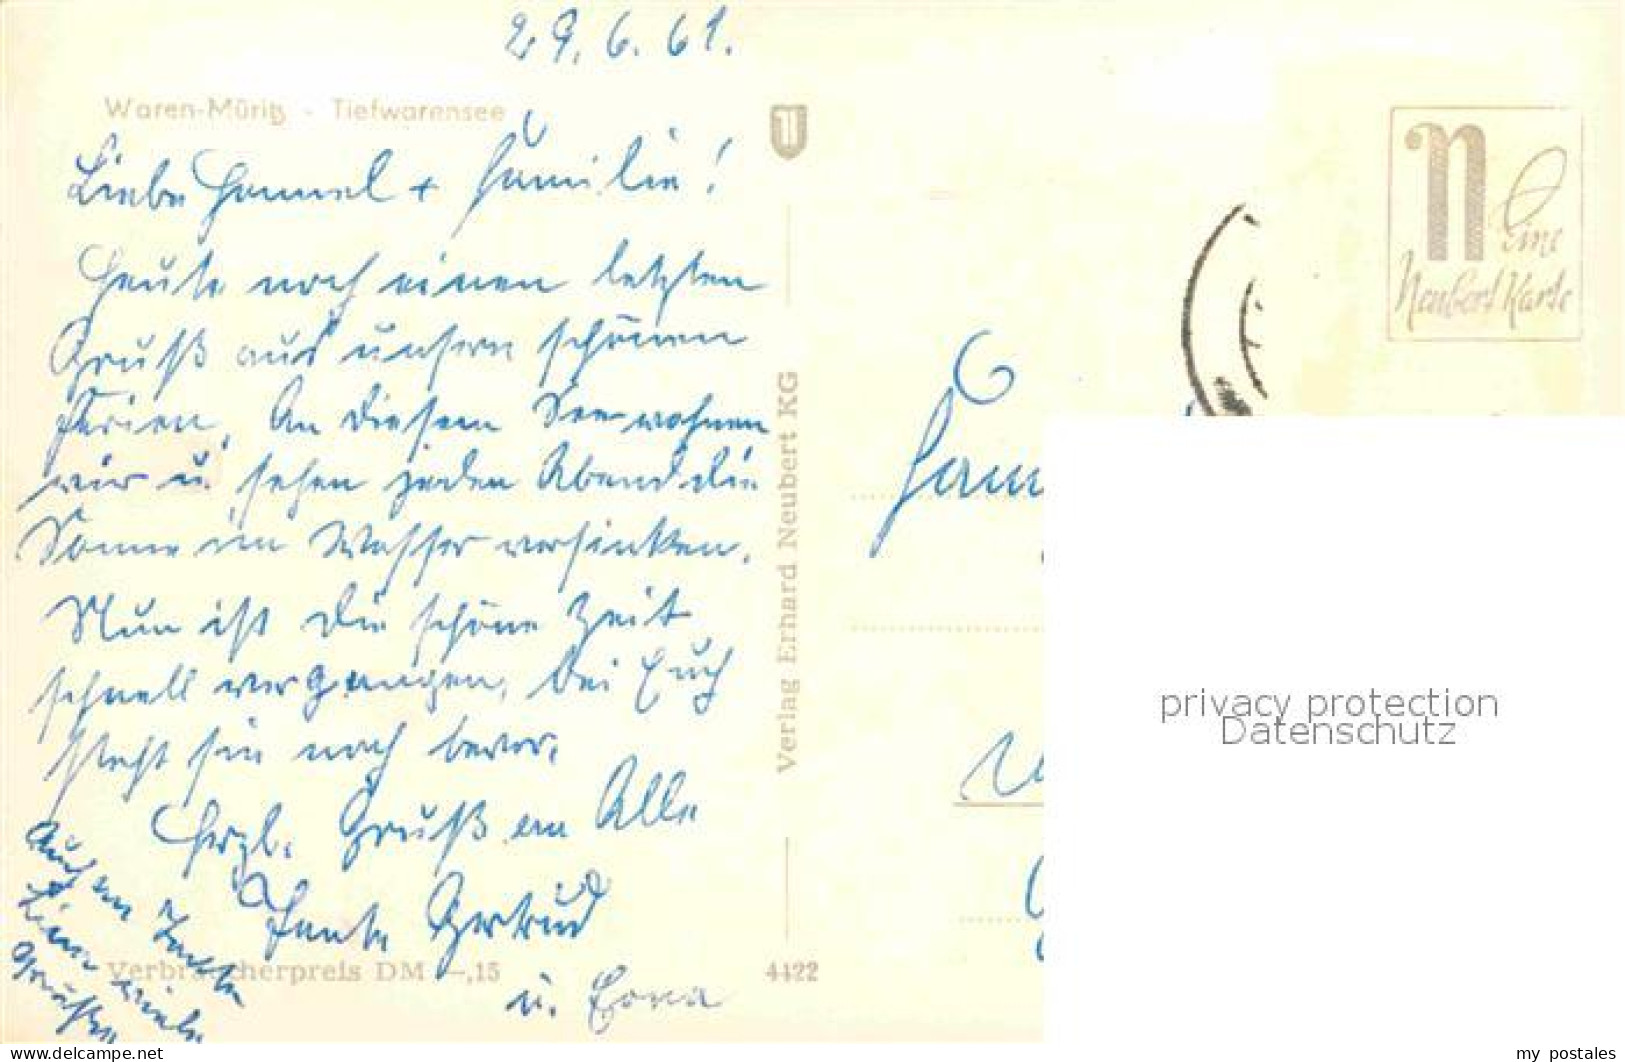 29. 6. 61.
Waren-Müritz - Tiefwarensee
Liebe Hannel + Familie!
Heute noch einen letzten
Gruß aus unsern schönen
Ferien. An diesem See wohnen
wir u. sehen jeden Abend die
Sonne im Wasser versinken.
Nun ist die schöne Zeit
schnell vergangen, bei Euch
steht sie noch bevor.
Herzl. Gruß an Alle
Tante Gertrud
u.
Auch an Tante
viele
Grüße
Verbraucherpreis DM -,15
4422
Verlag Erhard Neubert KG
N Eine
Neubert Karte
privacy protection
Datenschutz
my_postales
https://www.delcampe.net